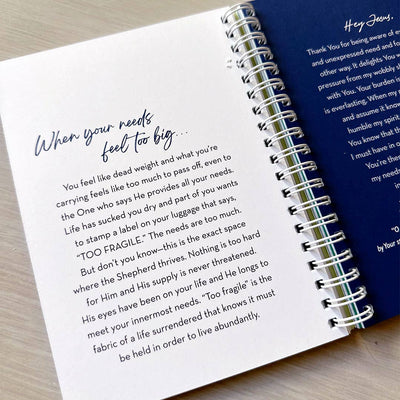 When your needs
feel too big...
You feel like dead weight and what you're
carrying feels like too much to pass off, even to
the One who says He provides all your needs.
Life has sucked you dry and part of you wants
to stamp a label on your luggage that says,
"TOO FRAGILE." The needs are too much.
But don't you know—this is the exact space
where the Shepherd thrives. Nothing is too hard
for Him and His supply is never threatened.
His eyes have been on your life and He longs to
meet your innermost needs. "Too fragile" is the
fabric of a life surrendered that knows it must
be held in order to live abundantly.
Hey Jesus,
Thank You for being aware of
and unexpressed need and
other way. It delights You
pressure from my wobbly
with You. Your burden is
is everlasting. When my
and assume it
humble my spirit
You know that
I must have in
You're the
my needs
in
"O
by Your